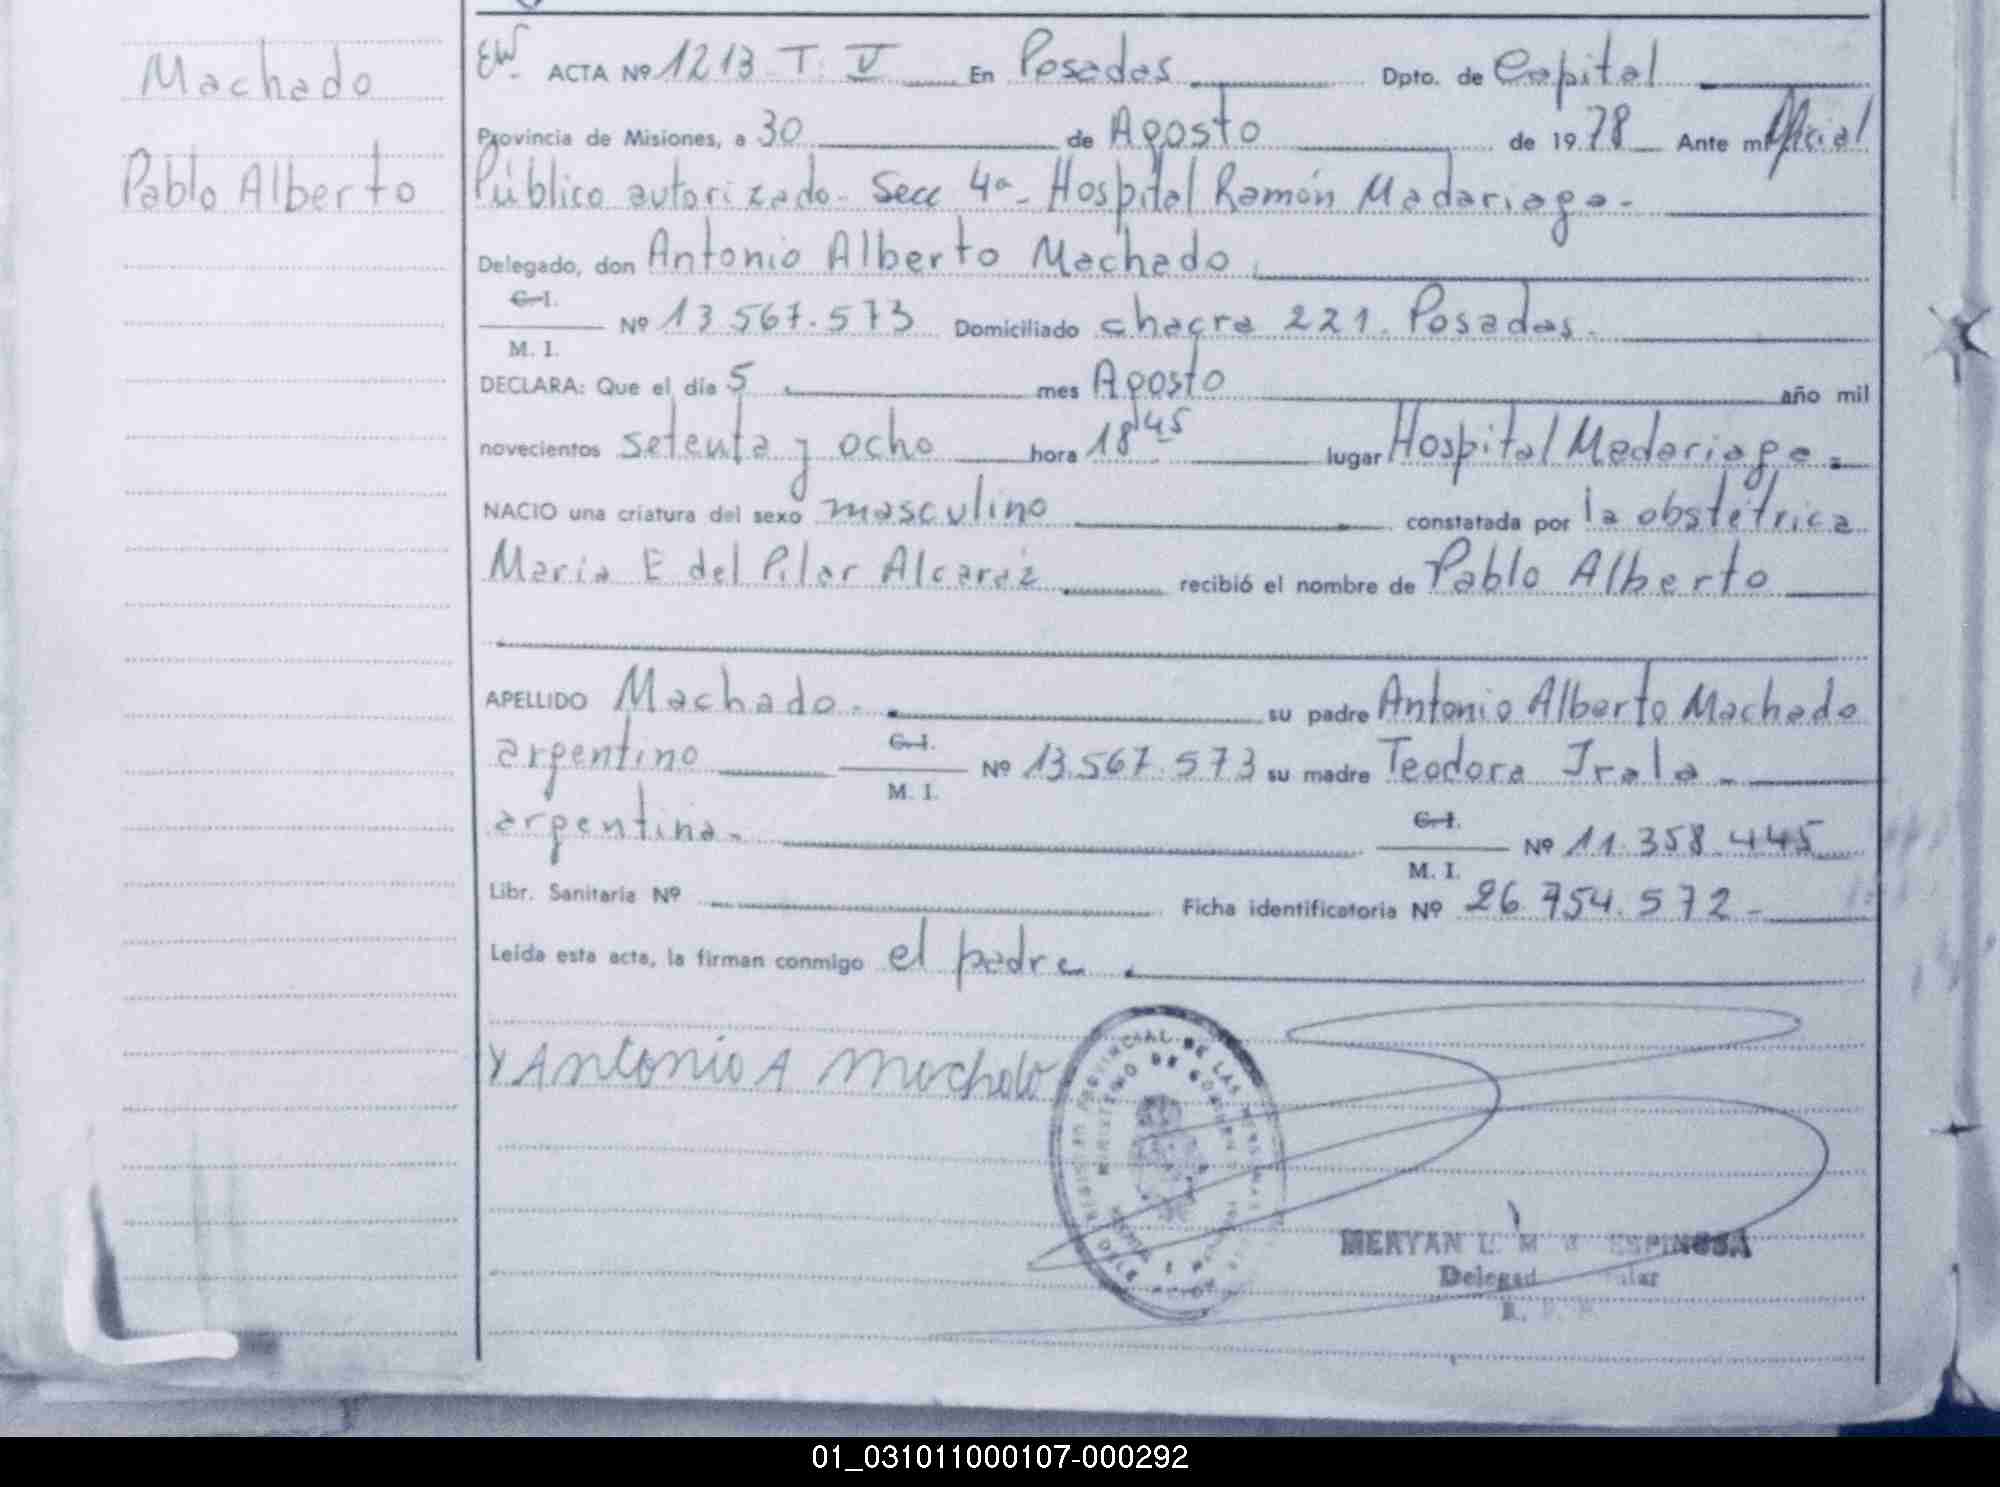 Machado
Pablo Alberto
ACTA Nº 1213 T. V En Posadas Dpto. de Capital
Provincia de Misiones, a 30 de Agosto de 1978 Ante mi Oficial
Público autorizado - Secc 4ª - Hospital Ramón Madariaga -
Delegado, don Antonio Alberto Machado
C. I.
M. I. Nº 13.567.573 Domiciliado chacra 221. Posadas.
DECLARA: Que el día 5 mes Agosto año mil
novecientos setenta y ocho hora 18 45 lugar Hospital Madariaga -
NACIO una criatura del sexo masculino constatada por la obstétrica
Maria E del Pilar Alcaráz recibió el nombre de Pablo Alberto
APELLIDO Machado - su padre Antonio Alberto Machado
argentino C. I. M. I. Nº 13.567.573 su madre Teodora Irala -
argentina - C. I. M. I. Nº 11.358.445
Libr. Sanitaria Nº Ficha identificatoria Nº 26.754.572 -
Leída esta acta, la firman conmigo el padre
Antonio A Machado
MERYAN ESPINOSA
01_031011000107-000292